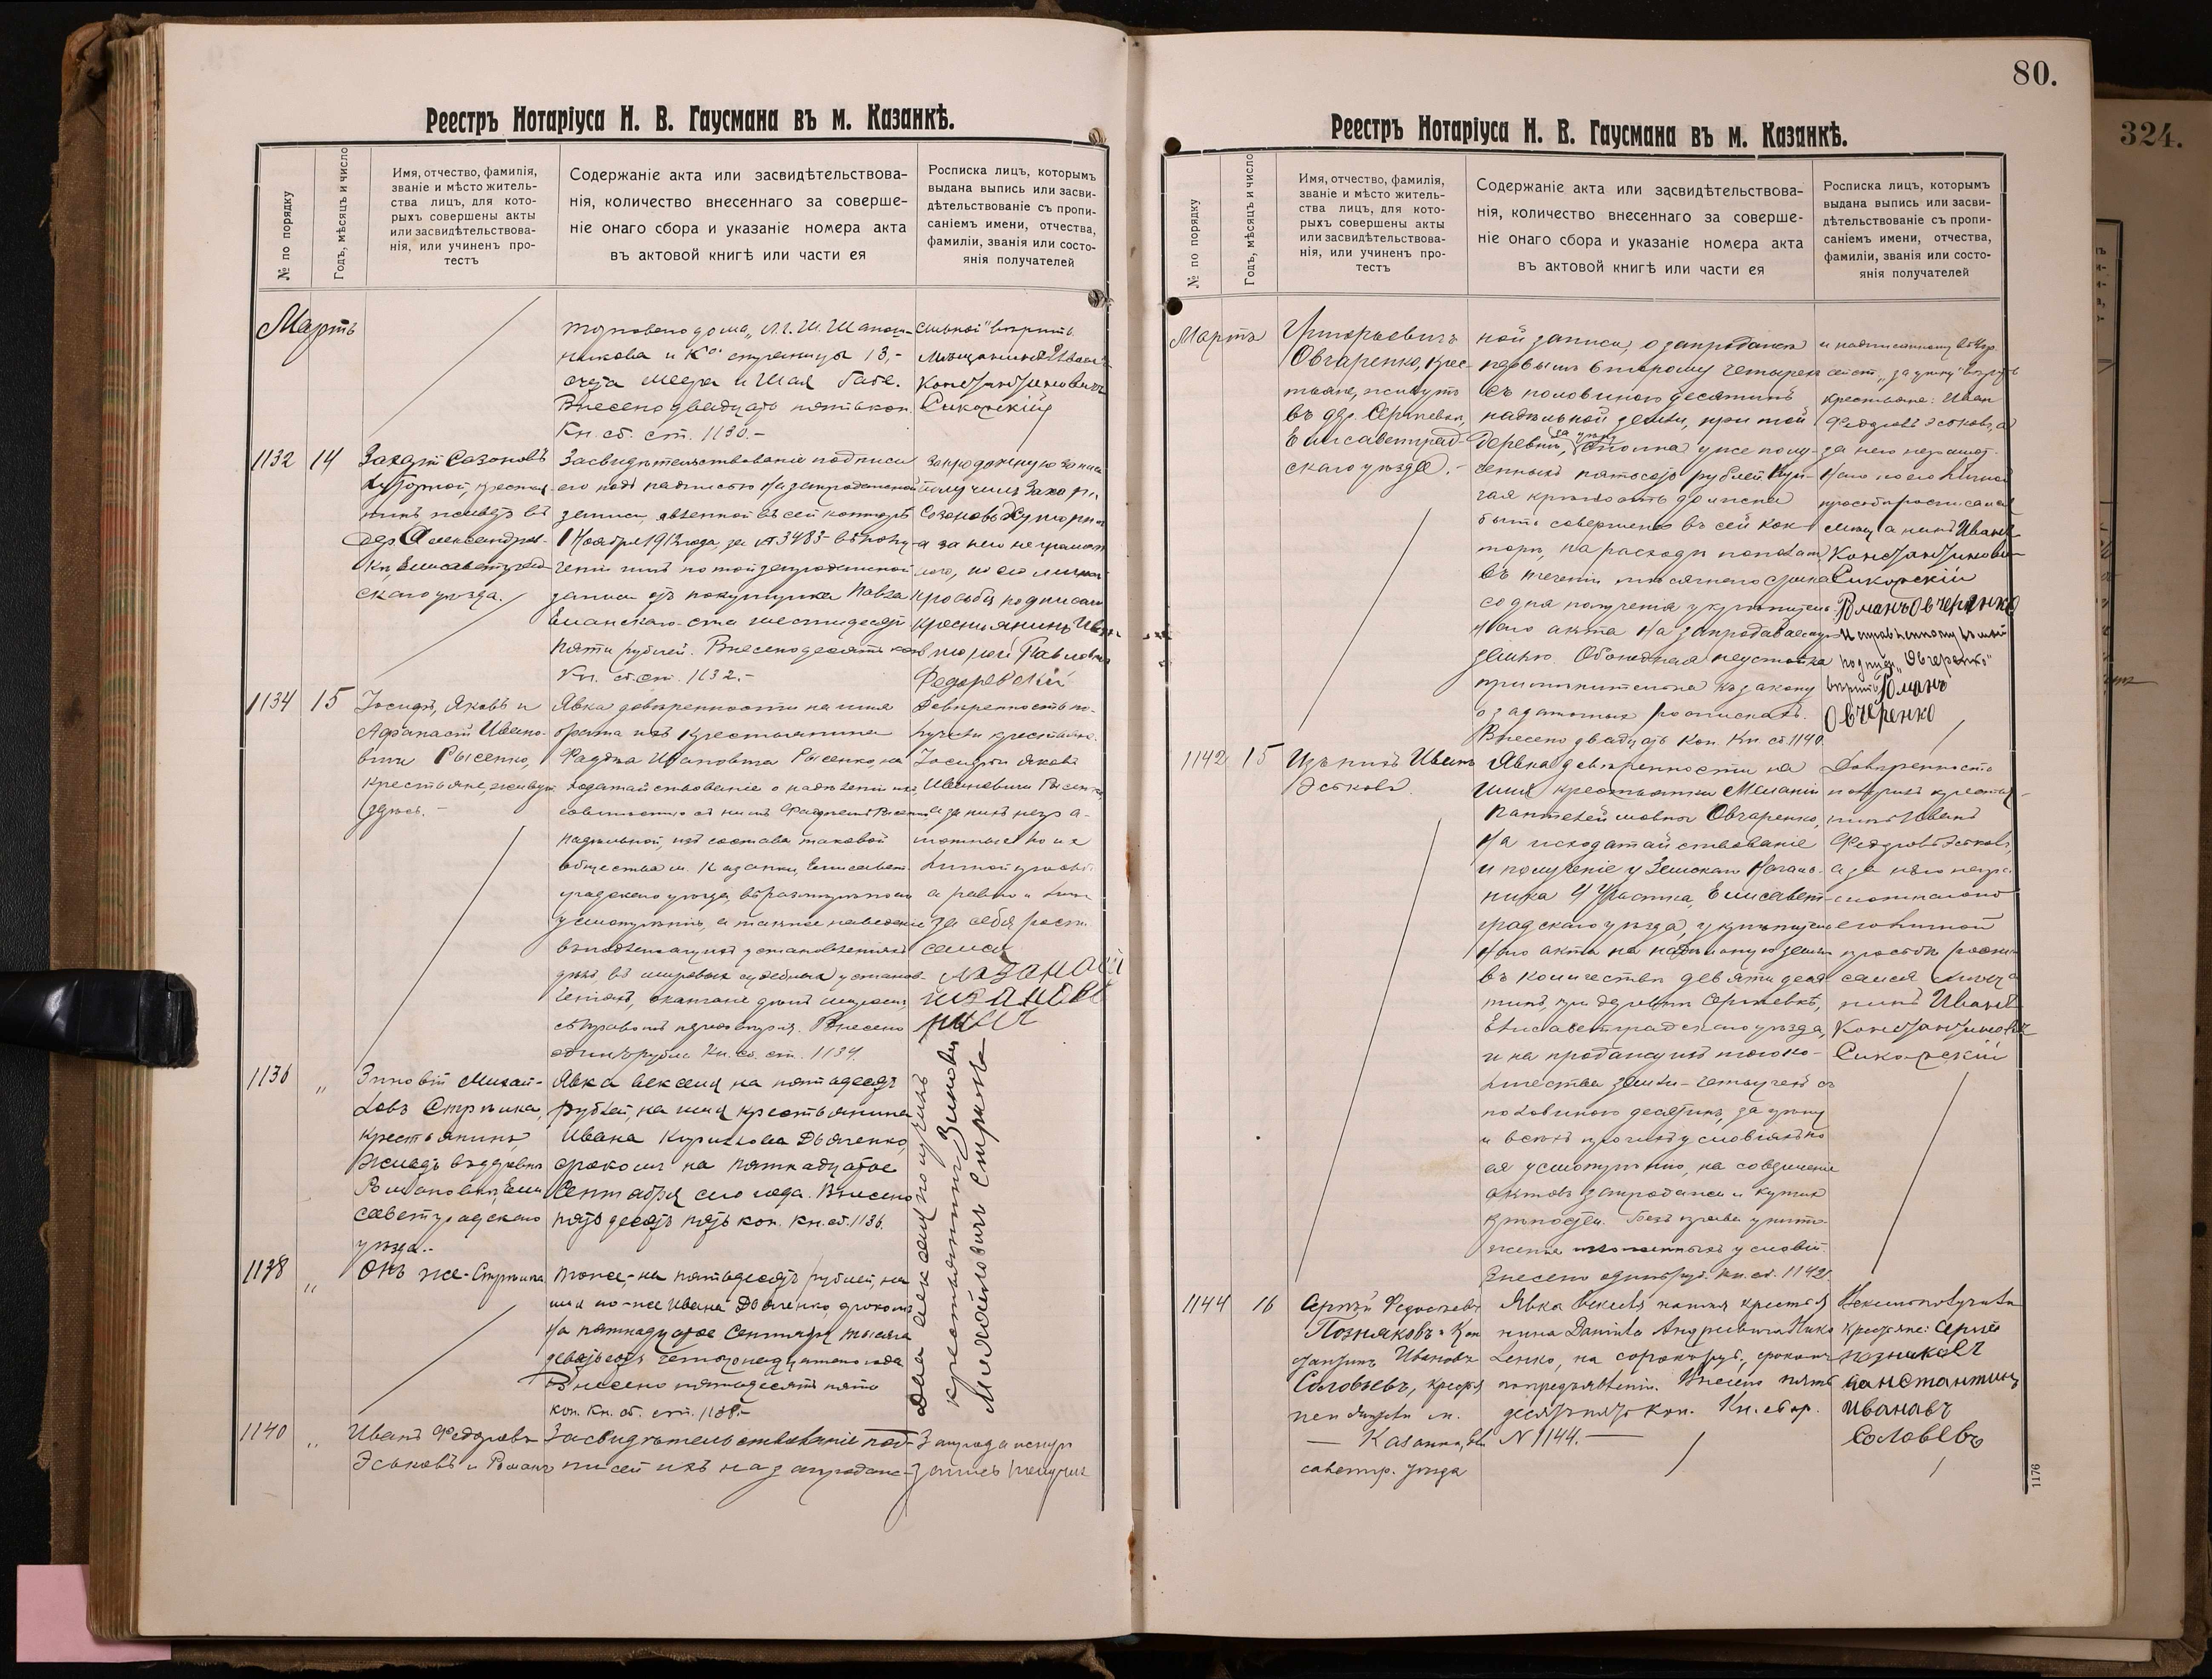 Реестръ Нотаріуса Н. В. Гаусмана въ м. Казанкѣ.
№ по порядку
Годъ, мѣсяцъ и число
Имя, отчество, фамилія,
званіе и мѣсто житель-
ства лицъ, для кото-
рыхъ совершены акты
или засвидѣтельствова-
нія, или учиненъ про-
тестъ
Содержаніе акта или засвидѣтельствова-
нія, количество внесеннаго за соверше-
ніе онаго сбора и указаніе номера акта
въ актовой книгѣ или части ея
Росписка лицъ, которымъ
выдана выпись или засви-
дѣтельствованіе съ пропи-
саніемъ имени, отчества,
фамиліи, званія или состо-
янія получателей
Мартъ
торговаго дома
никова и Ко страницы 13,-
Внесено двадцать пять коп.
Кн. сб. ст. 1130.-
вѣрить
мѣщанинъ Иванъ
Константиновичъ
Сикорскій
1132
14
Захарій Сазоновъ
Хуторной, крестья-
нинъ живетъ въ
дер. Александров-
кѣ, Елисаветград-
скаго уѣзда.
Засвидѣтельствованіе подписи
его подъ надписью на запродажной
записи, явленной въ сей конторѣ
1 Ноября 1912 года, за № 3483 въ полу-
ченіи имъ по той запродажной
записи отъ покупщика Павла
Еланскаго ста шестидесяти
пяти рублей. Внесено десять коп.
Кн. сб. ст. 1132.-
запродажную запись
получилъ Захарій
Созоновъ Хуторной
а за него неграмот-
наго, по его личной
просьбѣ подписался
крестьянинъ
Павловъ
Федоревскій
1134
15
Іосифъ, Яковъ и
Афанасій Ивано-
вичи Рысенко,
крестьяне, живутъ
здѣсь.-
Явка довѣренности на имя
брата ихъ крестьянина
Фаддея Ивановича Рысенко, на
ходатайствованіе о надѣленіи ихъ,
совмѣстно съ нимъ Фаддеемъ Рысенко
надѣльной, изъ состава таковой
общества м. Казанки, Елисавет-
градскаго уѣзда, въ
усмотрѣнію, а также на веденіе
въ подлежащихъ установленіяхъ
дѣлъ въ мировыхъ судебныхъ установ-
леніяхъ, окончаніе дѣлъ миромъ,
съ правомъ передовѣрія. Внесено
одинъ рубль Кн. сб. ст. 1134.
Довѣренность по-
лучили крестьяне:
Іосифъ и Яковъ
Ивановичи Рысенко,
а за нихъ негра-
мотныхъ по ихъ
личной просьбѣ
а равно и
за себя роспи-
сался
Афанасій
Иванови
1136
"
Зиновій Михай-
ловъ Стрѣшка,
крестьянинъ,
живетъ въ деревнѣ
Романовкѣ, Ели-
саветградскаго
уѣзда.-
Явка векселя на пятьдесятъ
рублей, на имя крестьянина
Ивана Кирилова Дьяченко,
срокомъ на пятнадцатое
Сентября сего года. Внесено
пятьдесятъ пять коп. Кн. сб. 1136.
1138
"
Онъ же
Тоже,- на пятьдесятъ рублей, на
имя то-же Ивана Дьяченко срокомъ
на пятнадцатое Сентября тысяча
девятьсотъ четырнадцатаго года
Внесено пятьдесятъ пять
коп. Кн. сб. ст. 1138.-
Два векселя получилъ
крестьянинъ Зиновій
Михайловичъ
1140
"
Иванъ Федоровъ
Эськовъ и Романъ
Засвидѣтельствованіе под-
писей ихъ на запродаж-
Запродажную
запись получили
80.
Реестръ Нотаріуса Н. В. Гаусмана въ м. Казанкѣ.
№ по порядку
Годъ, мѣсяцъ и число
Имя, отчество, фамилія,
званіе и мѣсто житель-
ства лицъ, для кото-
рыхъ совершены акты
или засвидѣтельствова-
нія, или учиненъ про-
тестъ
Содержаніе акта или засвидѣтельствова-
нія, количество внесеннаго за соверше-
ніе онаго сбора и указаніе номера акта
въ актовой книгѣ или части ея
Росписка лицъ, которымъ
выдана выпись или засви-
дѣтельствованіе съ пропи-
саніемъ имени, отчества,
фамиліи, званія или состо-
янія получателей
Мартъ
Григорьевичъ
Овчаренко, крес-
тьяне, живутъ
въ дер. Сергѣевкѣ,
Елисаветград-
скаго уѣзда.-
ной записи, о запродажѣ
первымъ второму четырехъ
съ половиною десятинъ
надѣльной земли, при той
деревнѣ, за цѣну сполна уже полу-
ченныхъ пятьсотъ рублей. Куп-
чая крѣпость должна
быть совершена въ сей кон-
торѣ, на расходы пополамъ,
въ теченіи мѣсячнаго срока
со дня полученія укрѣпитель-
наго акта на запродаваемую
землю. Обоюдная неустойка
примѣнительна къ закону
о задаточныхъ роспискахъ.
Внесено двадцать коп. Кн. сб. 1140.
"за цѣну" вѣрить
крестьяне: Иванъ
Федоровъ Эськовъ, а
за него неграмот-
наго по его личной
просьбѣ росписался
мѣщанинъ Иванъ
Константинови
Сикорскій
Романъ Овчеренко
подписи "Овчеренко"
вѣрить Романъ
Овчеренко
1142
15
Иванъ
Эськовъ.
Явка довѣренности на
имя крестьянки Меланіи
Пантелеймовны Овчаренко,
на исходатайствованіе
и полученіе у Земскаго Началь-
ника 4 Участка, Елисавет-
градскаго уѣзда, укрѣпитель-
наго акта на надѣльную землю
въ количествѣ девяти деся-
тинъ, при деревнѣ Сергѣевкѣ,
Елисаветградскаго уѣзда,
и на продажу изъ того ко-
личества земли - четырехъ съ
половиною десятинъ, за цѣну
и всѣхъ прочихъ условіяхъ по
ея усмотрѣнію, на совершеніе
актовъ запродажи и купчихъ
крѣпостей. Безъ права уничто-
женія условій.
Внесено одинъ руб. Кн. сб. 1142.
Довѣренность
получилъ крестья-
нинъ Иванъ
Федоровъ Эськовъ,
а за него негра-
мотнаго по
его личной
просьбѣ роспи-
сался мѣща-
нинъ Иванъ
Константиновичъ
Сикорскій
1144
16
Сергѣй Федосѣевъ
Позняковъ и Кон-
стантинъ Ивановъ
Соловьевъ, крестья-
не м.
Казанка, Ели-
саветгр. уѣзда
Явка векселя на имя крестья-
нина Даніила Андреевича Нико-
ленко, на сорокъ руб., срокомъ
по предъявленіи. Внесено пять-
десятъ пять коп. Кн. сбор.
№ 1144.
Вексель получили
крестьяне: Сергей
Позниковъ
Канстантинъ
Иванавъ
Соловьевъ
1176
324.